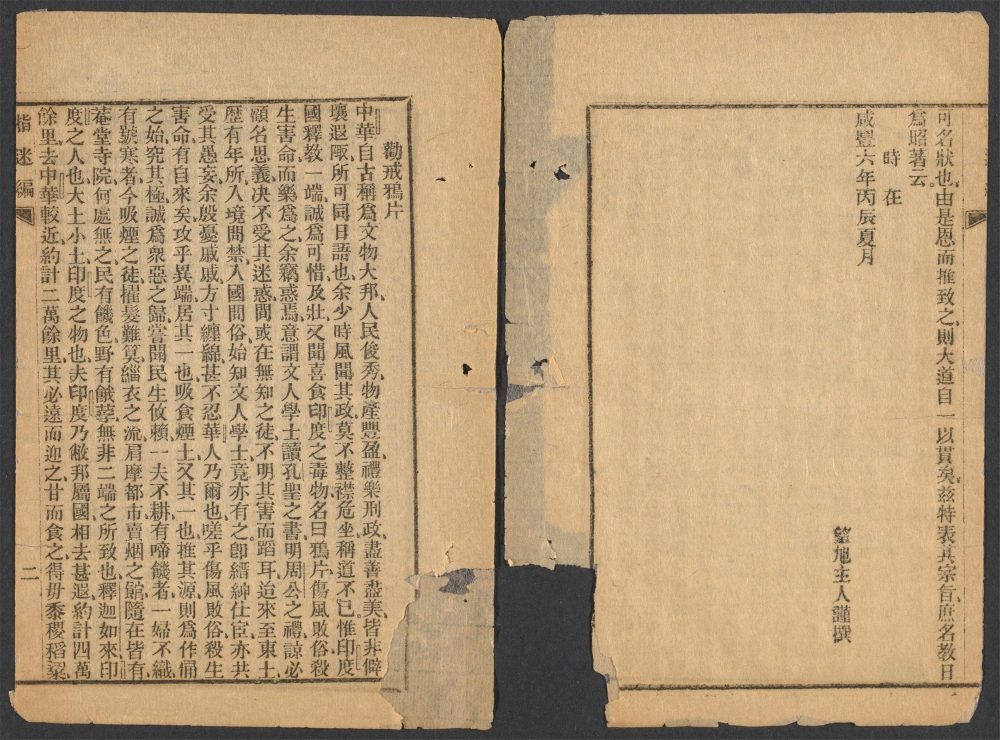 可名狀也由是恩而推致之則大道自一以貫矣茲特表其宗旨庶名教日
爲昭著云
時在
咸豐六年丙辰夏月
望旭主人謹撰
勸戒鴉片
中華自古稱爲文物大邦人民俊秀物產豐盈禮樂刑政盡善盡美皆非僻
壤遐陬所可同日語也余少時風聞其政莫不整襟危坐稱道不已惟印度
國釋教一端誠爲可惜及壯又聞喜食印度之毒物名曰鴉片傷風敗俗殺
生害命而樂爲之余竊惑焉意謂文人學士讀孔聖之書明周公之禮諒必
顧名思義决不受其迷惑間或在無知之徒不明其害而蹈耳迨來至東土
歷有年所入境問禁入國問俗始知文人學士竟亦有之卽縉紳仕宦亦共
受其愚妄余殷憂戚戚方寸纏綿甚不忍華人乃爾也嗟乎傷風敗俗殺生
害命有自來矣攻乎異端居其一也吸食煙土又其一也推其源則爲作俑
之始究其極誠爲衆惡之歸嘗聞民生攸賴一夫不耕有啼饑者一婦不織
有號寒者今吸煙之徒擢髮難算緇衣之流肩摩都市賣烟之館隨在皆有
菴堂寺院何處無之民有饑色野有餓莩無非二端之所致也釋迦如來印
度之人也大土小土印度之物也夫印度乃敝邦屬國相去甚遐約計四萬
餘里去中華較近約計二萬餘里其必遠而迎之甘而食之得毋黍稷稻粱
指迷編
二